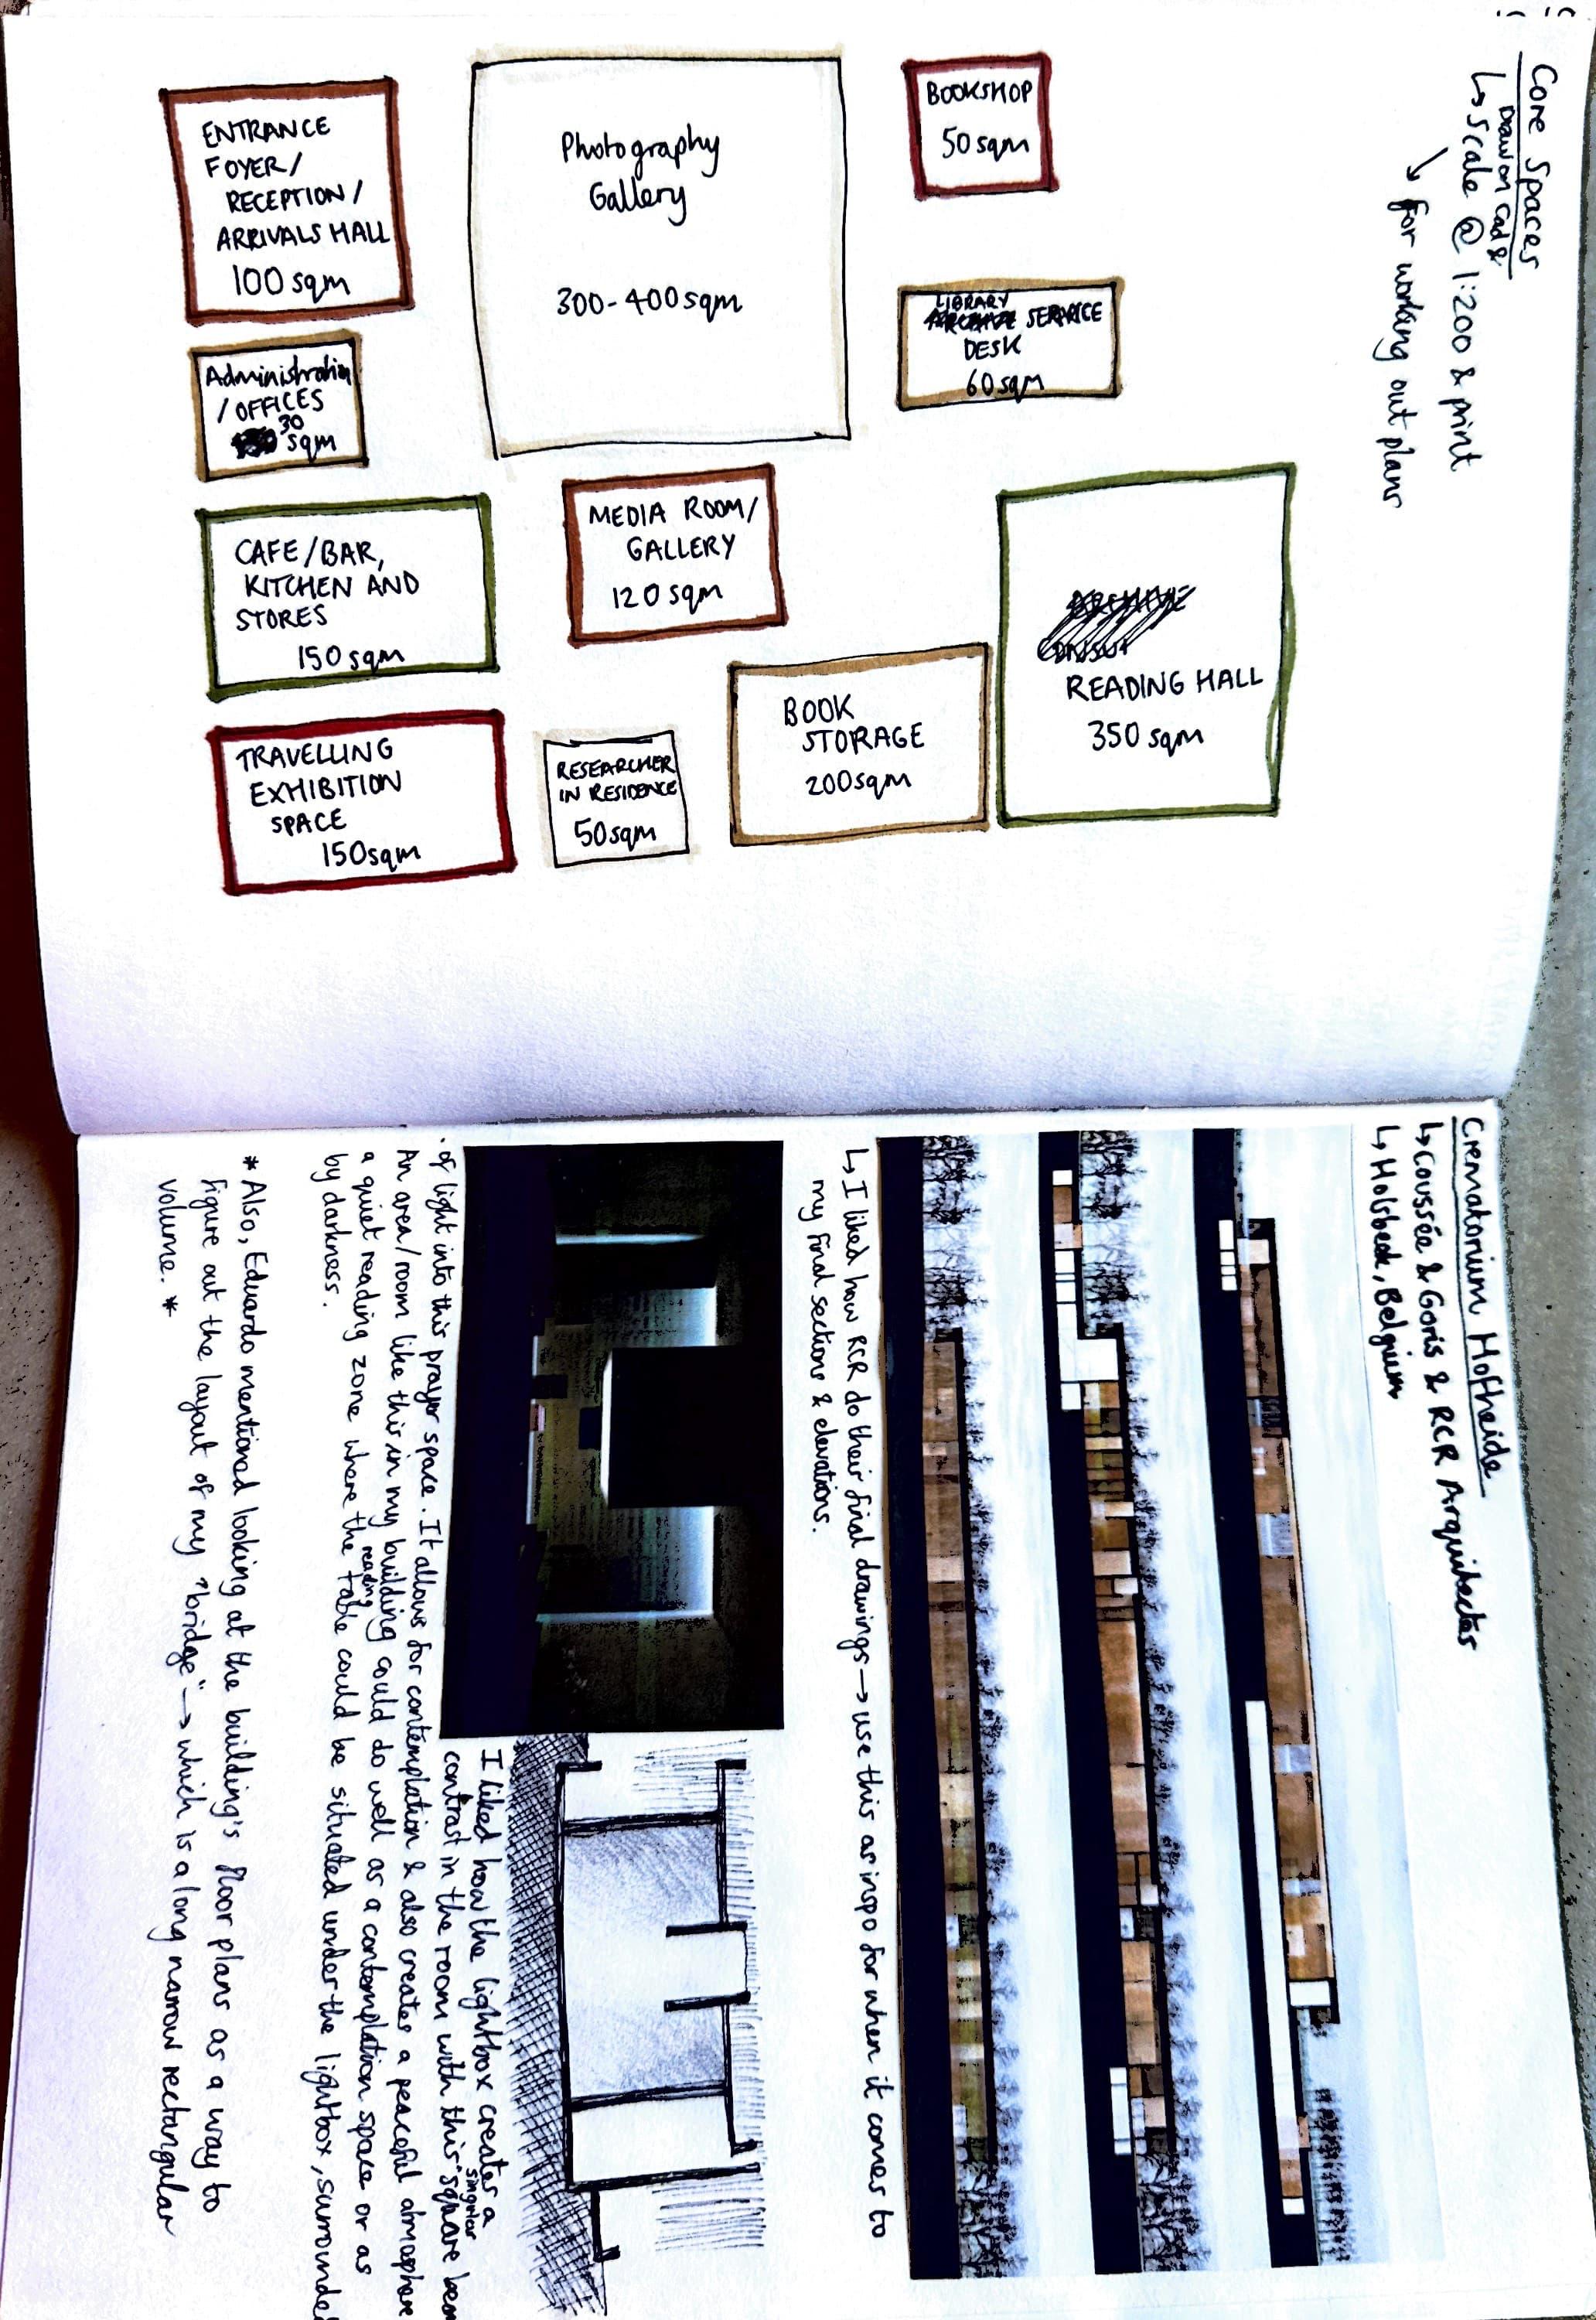 Core Spaces
Draw on Cad &
↳ Scale @ 1:200 & print
↘ for working out plans
ENTRANCE
FOYER/
RECEPTION/
ARRIVALS HALL
100 sqm
Photography
Gallery
300-400sqm
BOOKSHOP
50sqm
LIBRARY
SERVICE
DESK
60sqm
Administration
/OFFICES
30
sqm
CAFE/BAR,
KITCHEN AND
STORES
150sqm
MEDIA ROOM/
GALLERY
120sqm
READING HALL
350 sqm
BOOK
STORAGE
200sqm
TRAVELLING
EXHIBITION
SPACE
150sqm
RESEARCHER
IN RESIDENCE
50sqm
Crematorium Hofheide
↳ Coussée & Goris & RCR Arquitectes
↳ Holsbeek, Belgium
↳ I liked how RCR do their final drawings → use this as inspo for when it comes to
my final sections & elevations.
I liked how the lightbox creates a
contrast in the room with this singular square beam
of light into this prayer space. It allows for contemplation & also creates a peaceful atmosphere
An area/room like this in my building could do well as a contemplation space or as
a quiet reading zone where the reading table could be situated under the lightbox, surrounded
by darkness.
* Also, Eduardo mentioned looking at the building's floor plans as a way to
figure out the layout of my "bridge" → which is a long narrow rectangular
volume. *